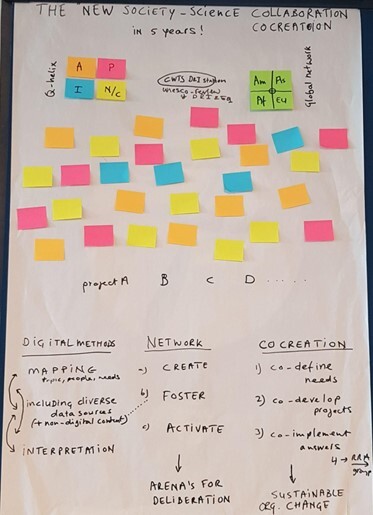 THE NEW SOCIETY-SCIENCE COLLABORATION
COCREATION
in 5 years!
Q-helix
A P
I N/C
CWTS DEI
Global network
Am As
Af EU
project A B C D .....
DIGITAL METHODS
MAPPING
topic, people, needs
including diverse
data sources
(+ non-digital context)
INTERPRETATION
NETWORK
a) CREATE
b) FOSTER
c) ACTIVATE
ARENA'S FOR
DELIBERATION
COCREATION
1) co-define
needs
2) co-develop
projects
3) co-implement
answers
4
SUSTAINABLE
ORG. CHANGE